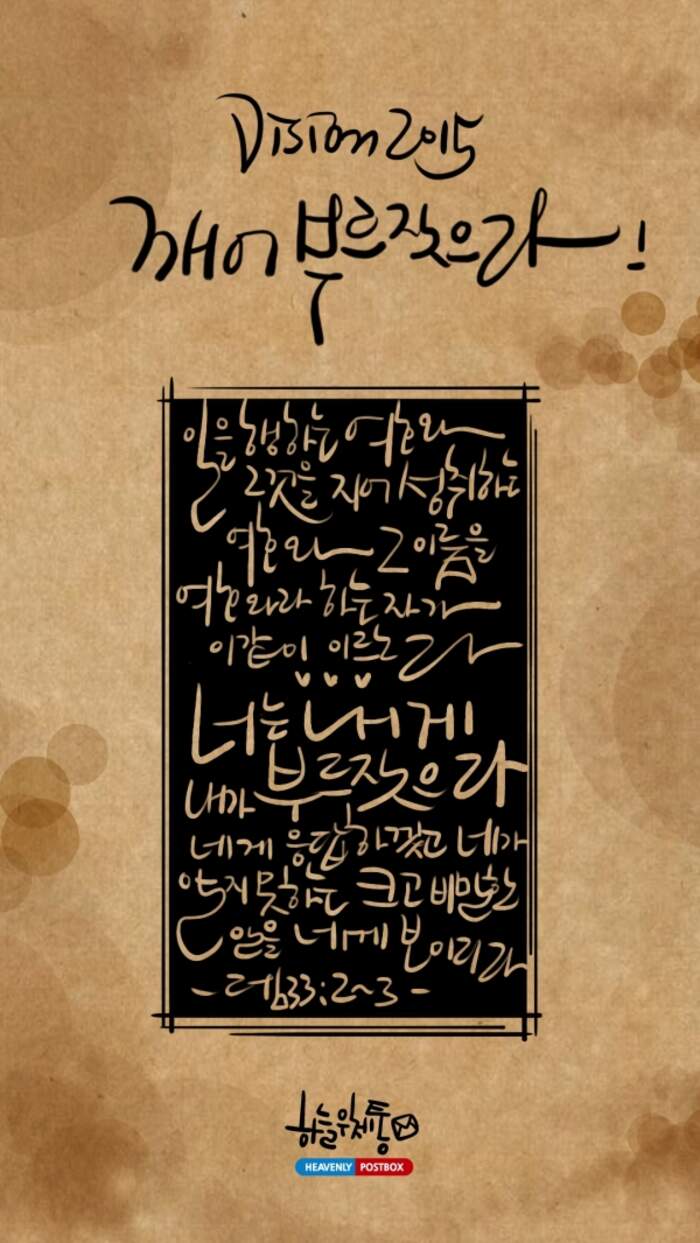 Vision 2015
깨어 부르짖으라!
일을 행하는 여호와
그것을 지어 성취하는
여호와 그 이름을
여호와라 하는 자가
이같이 이르노라
너는 내게
부르짖으라
내가
네게 응답하겠고 네가
알지 못하는 크고 비밀한
일을 네게 보이리라
- 렘33:2~3 -
하늘우체통
HEAVENLY POSTBOX